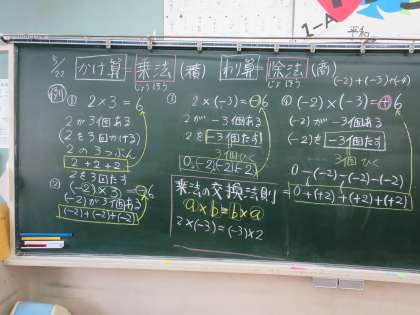 1-A
平和
5/22
かけ算=乗法(積)
じょうほう
わり算=除法(商)
じょほう
(-2)+(-3)+(-4)
例
① 2×3=6
2が3個ある
2を3回かける
2の3つぶん
2+2+2
2を3回たす
② (-2)×3=-6
(-2)が3個ある
(-2)+(-2)+(-2)
③ 2×(-3)=-6
2が-3個ある
2を-3回たす
3回ひく
0-(2)-(2)-(2)
④ (-2)×(-3)=+6
(-2)が-3個ある
(-2)を-3回たす
3回ひく
0-(-2)-(-2)-(-2)
=0+(+2)+(+2)+(+2)
乗法の交換法則
a×b=b×a
2×(-3)=(-3)×2